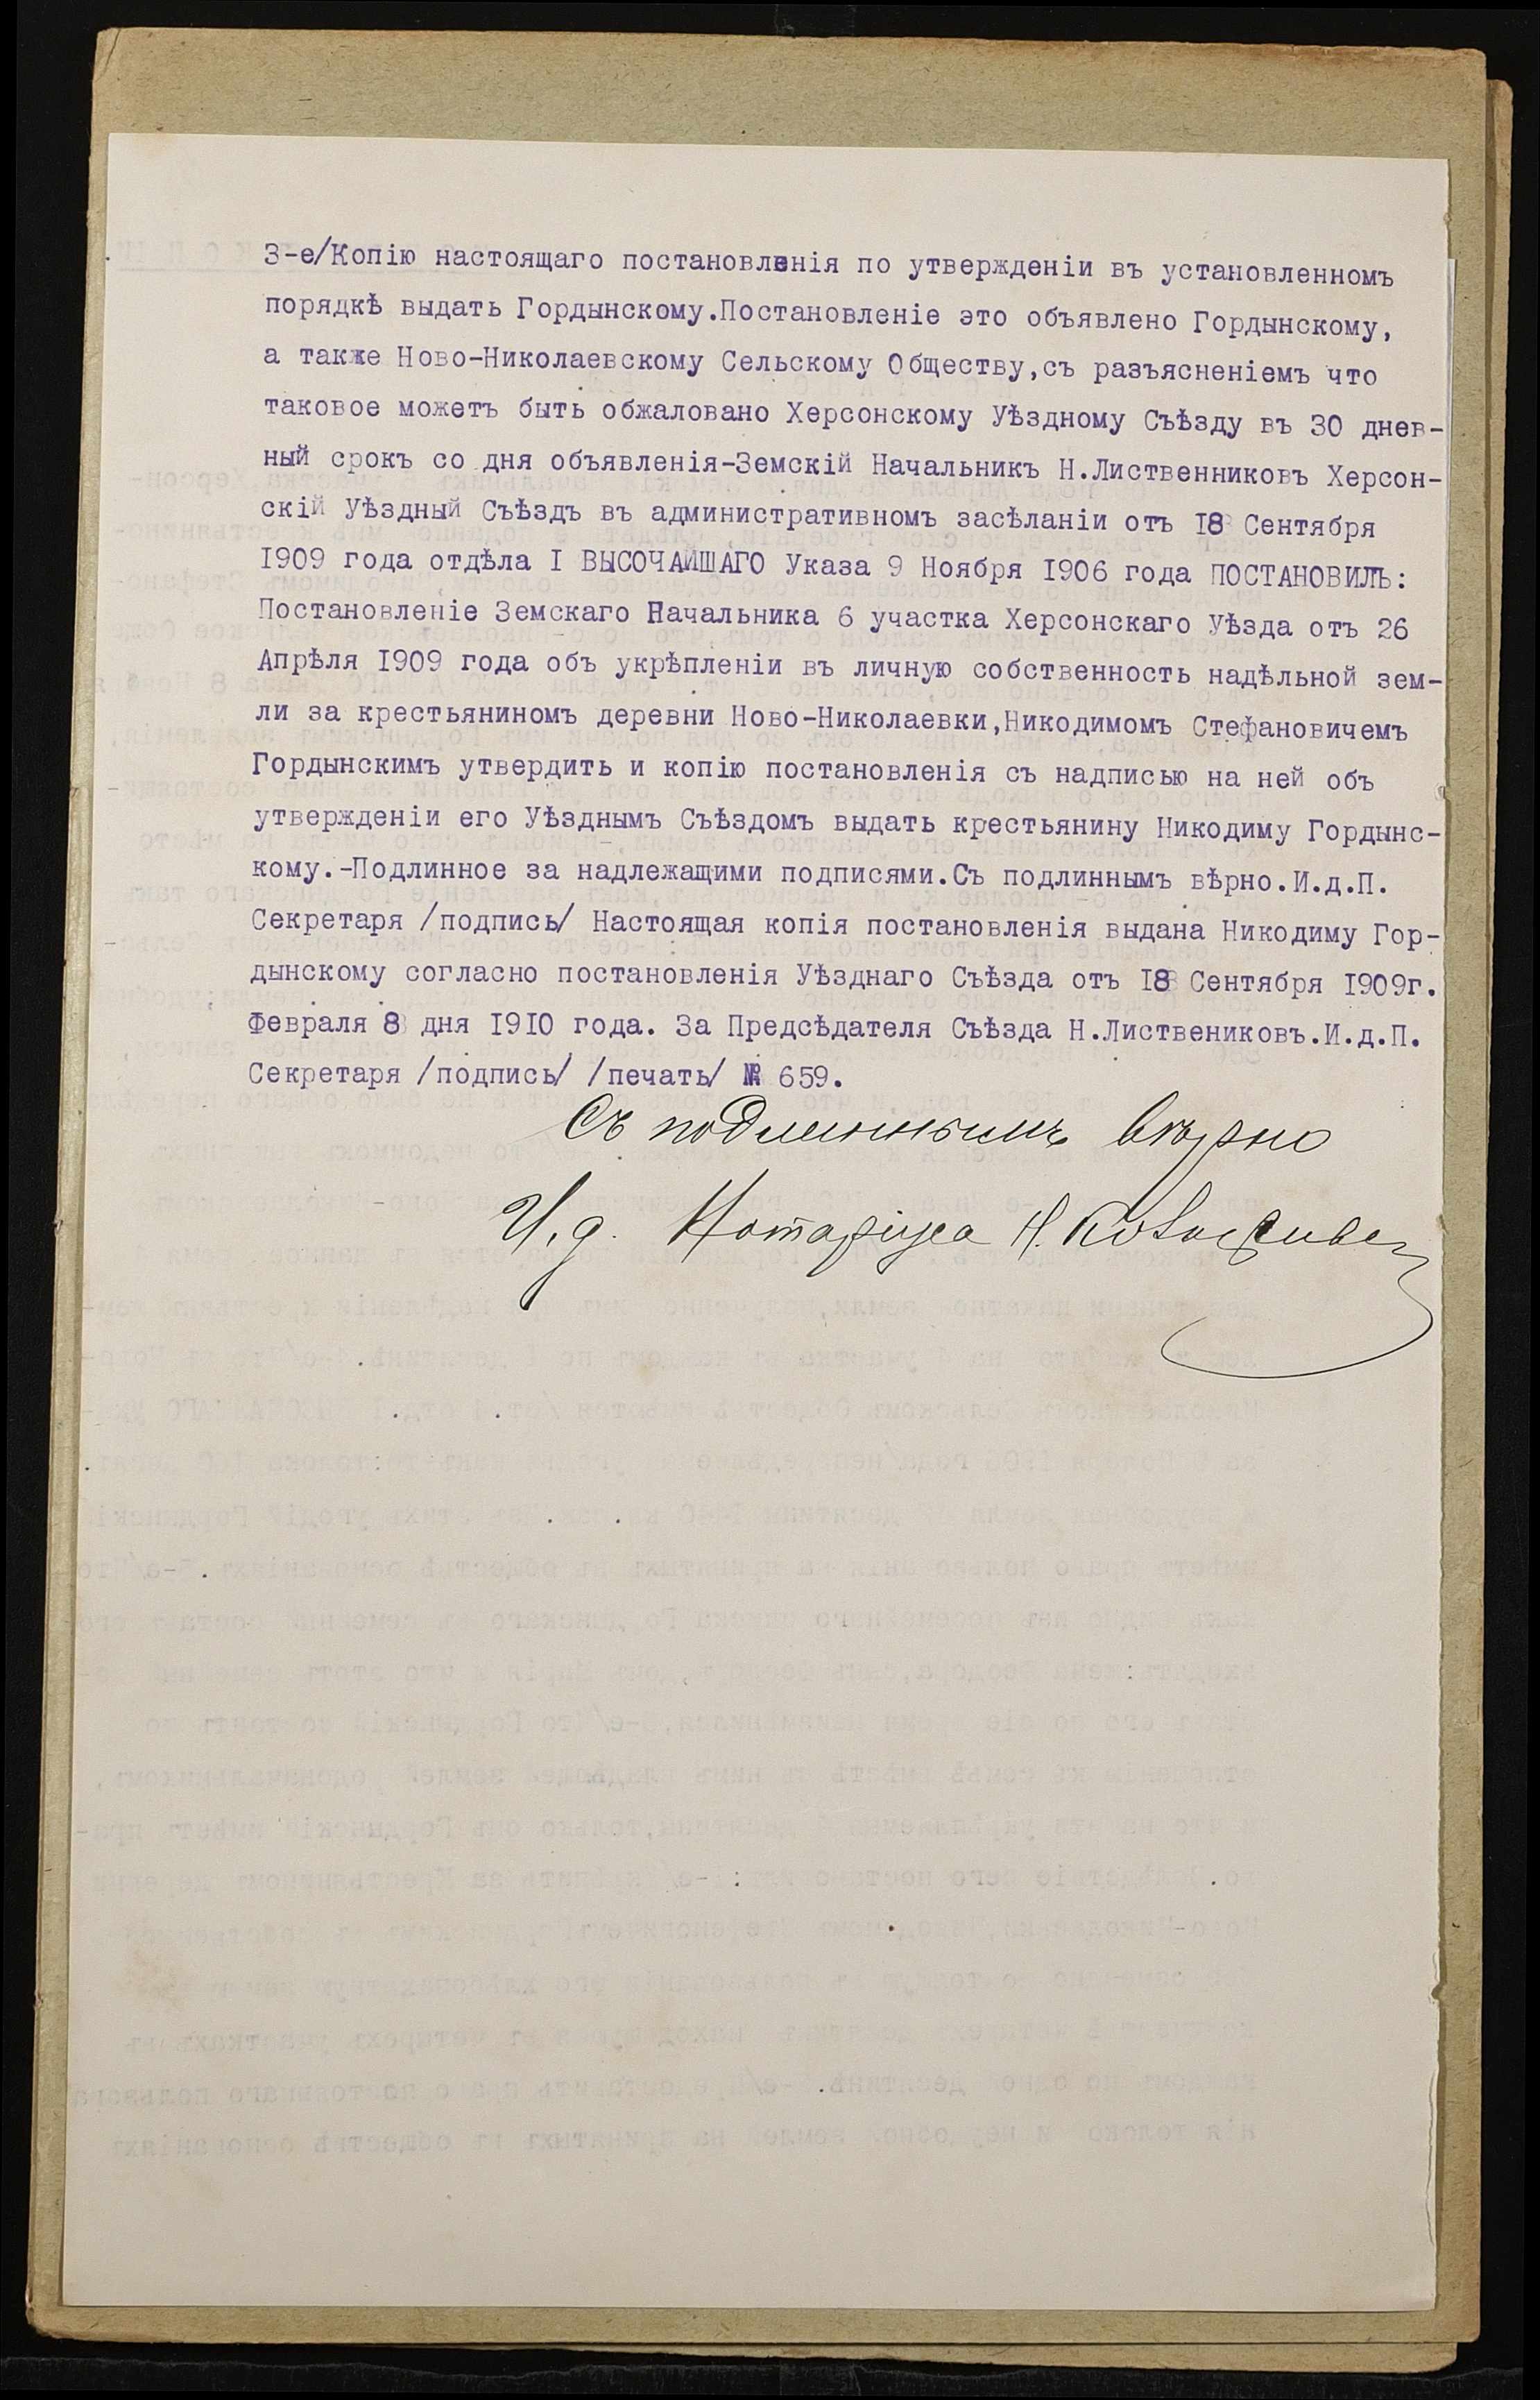 3-е/Копію настоящаго постановленія по утвержденіи въ установленномъ
порядкѣ выдать Гордынскому.Постановленіе это объявлено Гордынскому,
а также Ново-Николаевскому Сельскому Обществу,съ разъясненіемъ что
таковое можетъ быть обжаловано Херсонскому Уѣздному Съѣзду въ 30 днев-
ный срокъ со дня объявленія-Земскій Начальникъ Н.Лиственниковъ Херсон-
скій Уѣздный Съѣздъ въ административномъ засѣланіи отъ I8 Сентября
I909 года отдѣла I ВЫСОЧАЙШАГО Указа 9 Ноября I906 года ПОСТАНОВИЛЪ:
Постановленіе Земскаго Начальника 6 участка Херсонскаго Уѣзда отъ 26
Апрѣля I909 года объ укрѣпленіи въ личную собственность надѣльной зем-
ли за крестьяниномъ деревни Ново-Николаевки,Никодимомъ Стефановичемъ
Гордынскимъ утвердить и копію постановленія съ надписью на ней объ
утвержденіи его Уѣзднымъ Съѣздомъ выдать крестьянину Никодиму Гордынс-
кому.-Подлинное за надлежащими подписями.Съ подлиннымъ вѣрно.И.д.П.
Секретаря /подпись/ Настоящая копія постановленія выдана Никодиму Гор-
дынскому согласно постановленія Уѣзднаго Съѣзда отъ I8 Сентября I909г.
Февраля 8 дня I9I0 года. За Предсѣдателя Съѣзда Н.Листвениковъ.И.д.П.
Секретаря /подпись/ /печать/ № 659.
Съ подлиннымъ вѣрно
И.д. Нотаріуса Н.